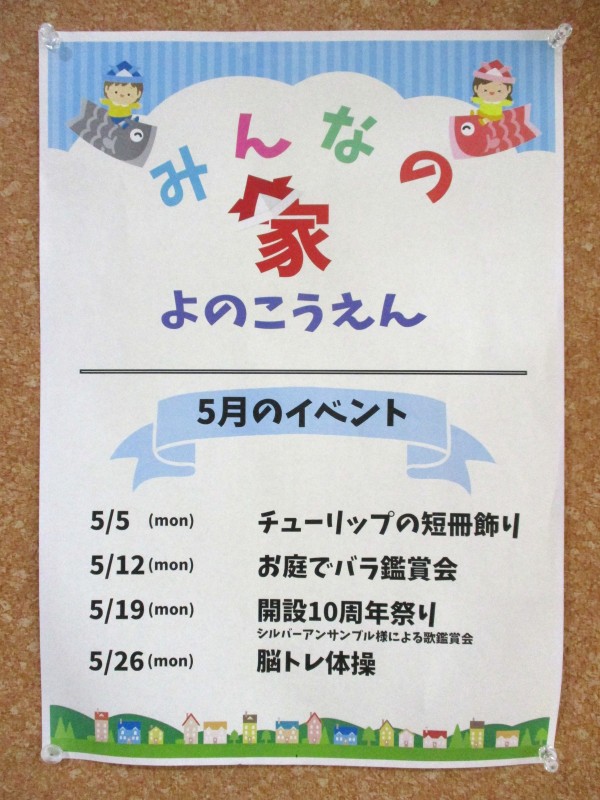 みんなの
家
よのこうえん
5月のイベント
5/5 (mon) チューリップの短冊飾り
5/12 (mon) お庭でバラ鑑賞会
5/19 (mon) 開設10周年祭り
シルバーアンサンブル様による歌鑑賞会
5/26 (mon) 脳トレ体操